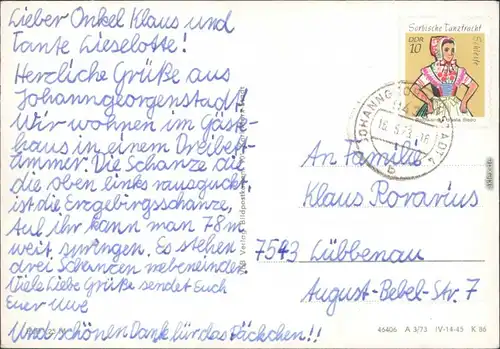 Lieber Onkel Klaus und
Tante Lieselotte!
Herzliche Grüße aus
Johanngeorgenstadt
Wir wohnen im Gäste-
haus in einem Dreibett-
zimmer. Die Schanze die
die oben links rausguckt,
ist die Erzgebirgsschanze,
Auf ihr kann man 78m
weit springen. Es stehen
drei Schanzen nebeneinder
Viele Liebe Grüße sendet Euch
Euer Uwe
Und schönen Dank für das Päckchen!!
Sorbische Tanztracht
DDR
10
Schleife
JOHANNGEORGENSTADT 4
b
An Familie
Klaus Rovarius
7543 Lübbenau
August-Bebel-Str. 7
VEB Bildpostkarten
46406 A 3/73 IV-14-45 K 86